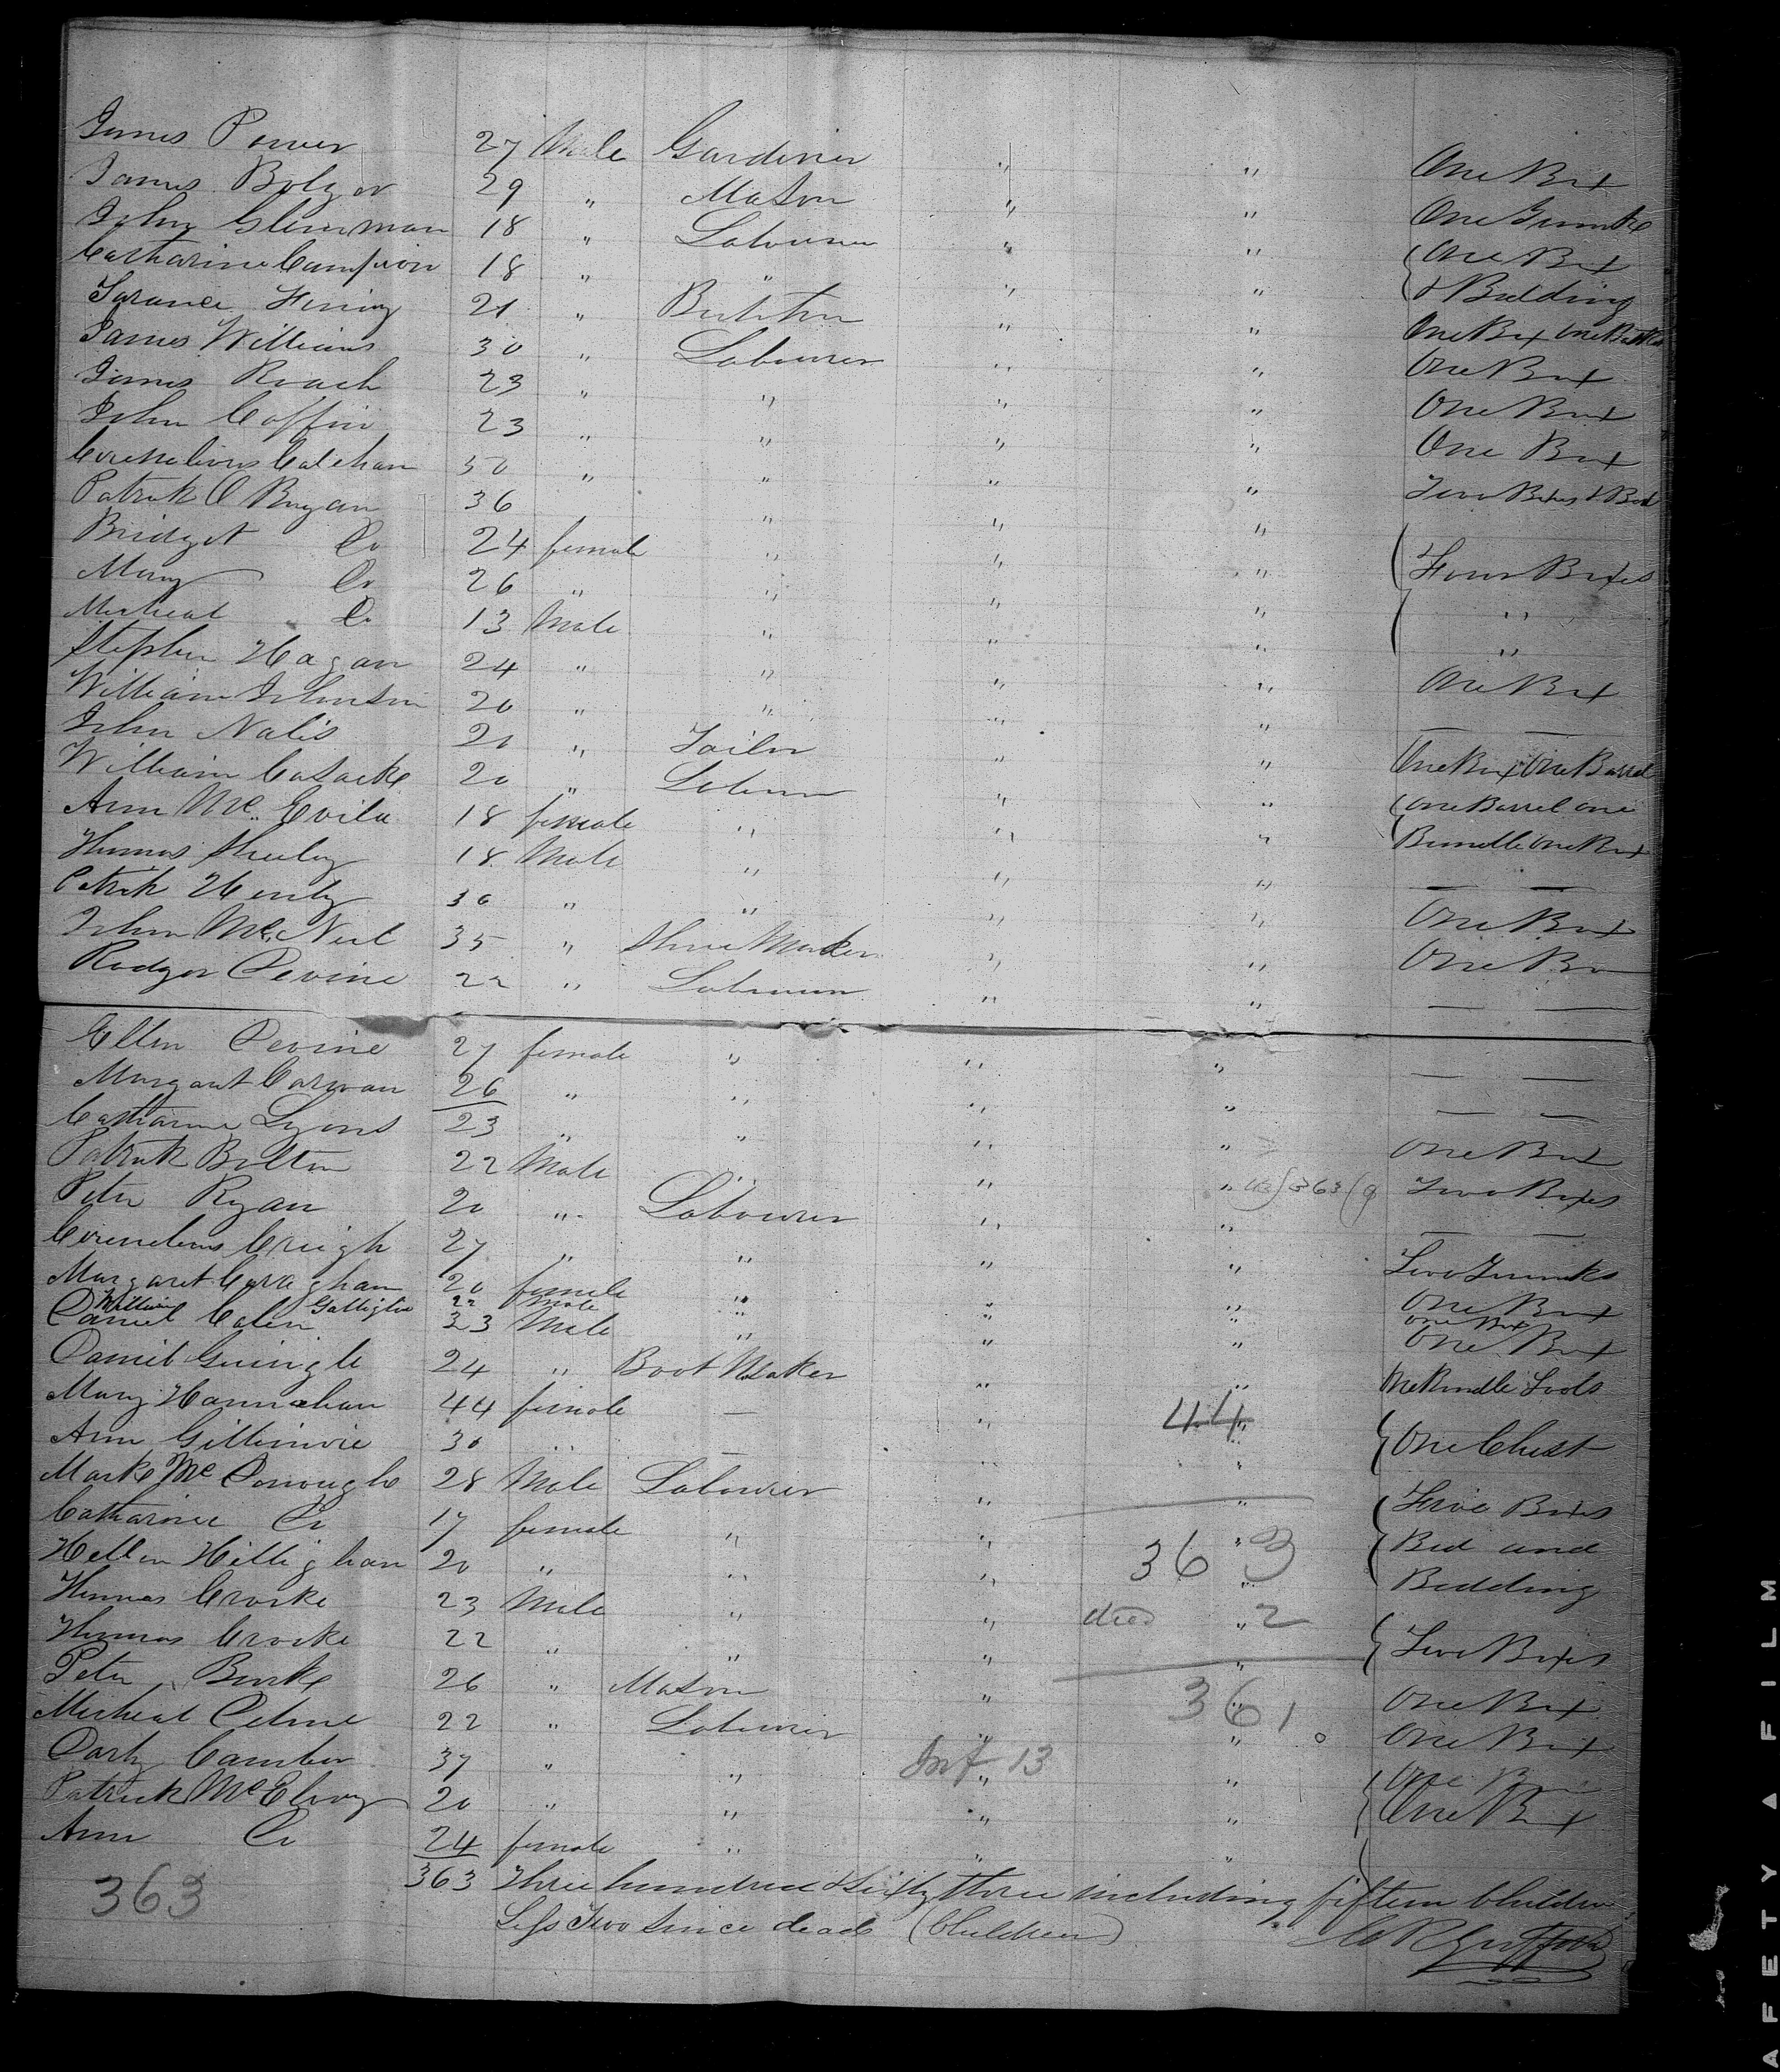 James Power 27 Male Gardiner " " One Box
James Bolger 29 " Mason " " One Trunke
John Glennman 18 " Labourer " " One Box
Catharine Campion 18 " " " " & Bedding
21 " Butcher " " One Box One
James Williams 30 " Labourer " " One Box
James Roach 23 " " " " One Box
John Coffin 23 " " " " One Box
Cornelious Calehan 30 " " " " Two Boxes & Bed
Patrick O Bryan 36 " " "
Bridget Do 24 female " " " Four Boxes
Mary Do 26 " " " " "
Micheal Do 13 Male " " " "
Stephen Hagan 24 " " " " One Box
William Johnson 20 " " " " — —
John Nalis 20 " Tailor " " One Box One Barrel
William Cusacke 20 " Laburer " " One Barrel one
Ann Mc Evila 18 female " " " Bundle One Box
Thomas Sheehy 18 Male " " " — —
Patrik Henly 30 " " " " One Box
John Mc Neil 35 " Shoe Maker " " One Box
Rodger Devine 22 " Labourer " " — —
Ellen Devine 27 female " " " — —
Margaret Carwan 26 " " " " — —
Catharine Lyons 23 " " " " One Box
Patrick Bolton 22 Male " " " 363 9 Two Boxes
Peter Ryan 20 " Labourer " " — —
Cornelious Creigh 27 " " " " Two Trunks
Margaret 20 female " " " One Box
William Gallighe 22 male " " " One Box
Daniel Calen 23 Male " " " One Box
Daniel Guingle 24 " Boot Maker " " One Bundle Tools
Mary Hannahan 44 female — " 44 "
Ann Gillinvie 30 " — " " One Chest
Marke Mc Donough 28 Male Labourer " " Five Boxes
Catharine Do 17 female " " " Bed and
Hellen Hillighan 20 " " " 363 Bedding
Thomas Crocke 23 Male " " died 2
Thomas Crocke 22 " " " " Two Boxes
Peter Burke 26 " Mason " 361 One Box
Micheal 22 " Labourer " " One Box
Darby Camber 37 " " Inf 13 " One Box
Patrick McElroy 20 " " " " One Box
Ann Do 24 female " " "
363 363 Three hundred & Sixty three including fifteen Children
Less Two Since dead (Children)
SAFETY FILM